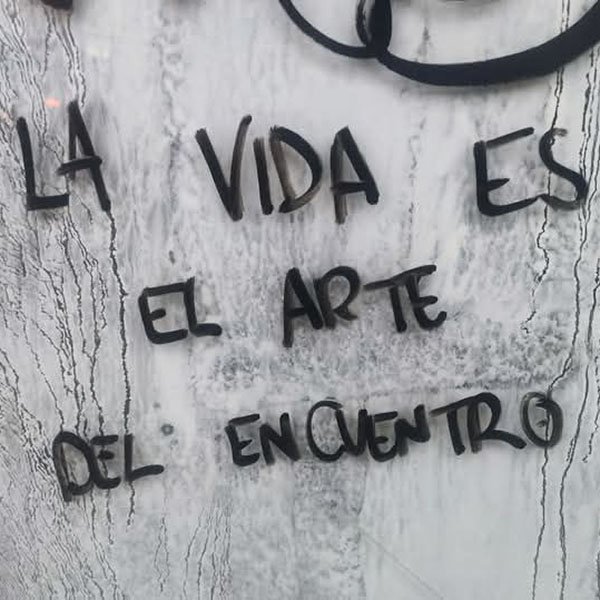 LA VIDA ES
EL ARTE
DEL ENCUENTRO